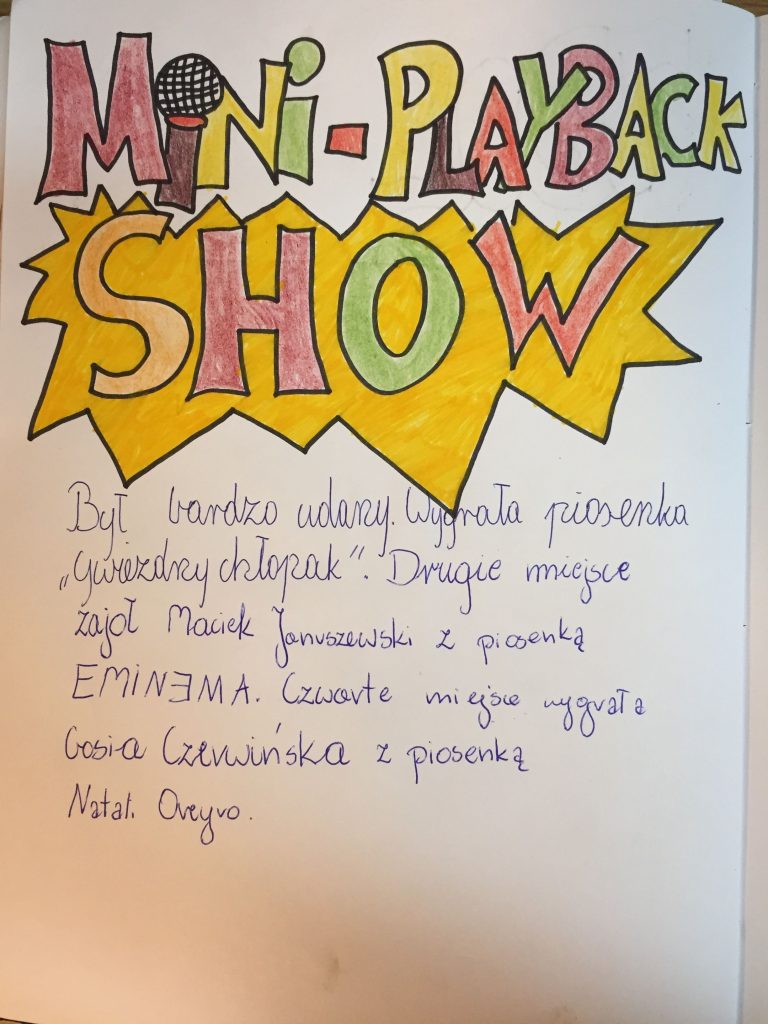 MiNi-PLAYBACK
SHOW
Był bardzo udany. Wygrała piosenka
„Gwiezdny chłopak“. Drugie miejsce
zajoł Maciek Januszewski z piosenką
EMINƎMA. Czwarte miejsce wygrała
Gosia Czerwińska z piosenką
Natal. Oreyro.